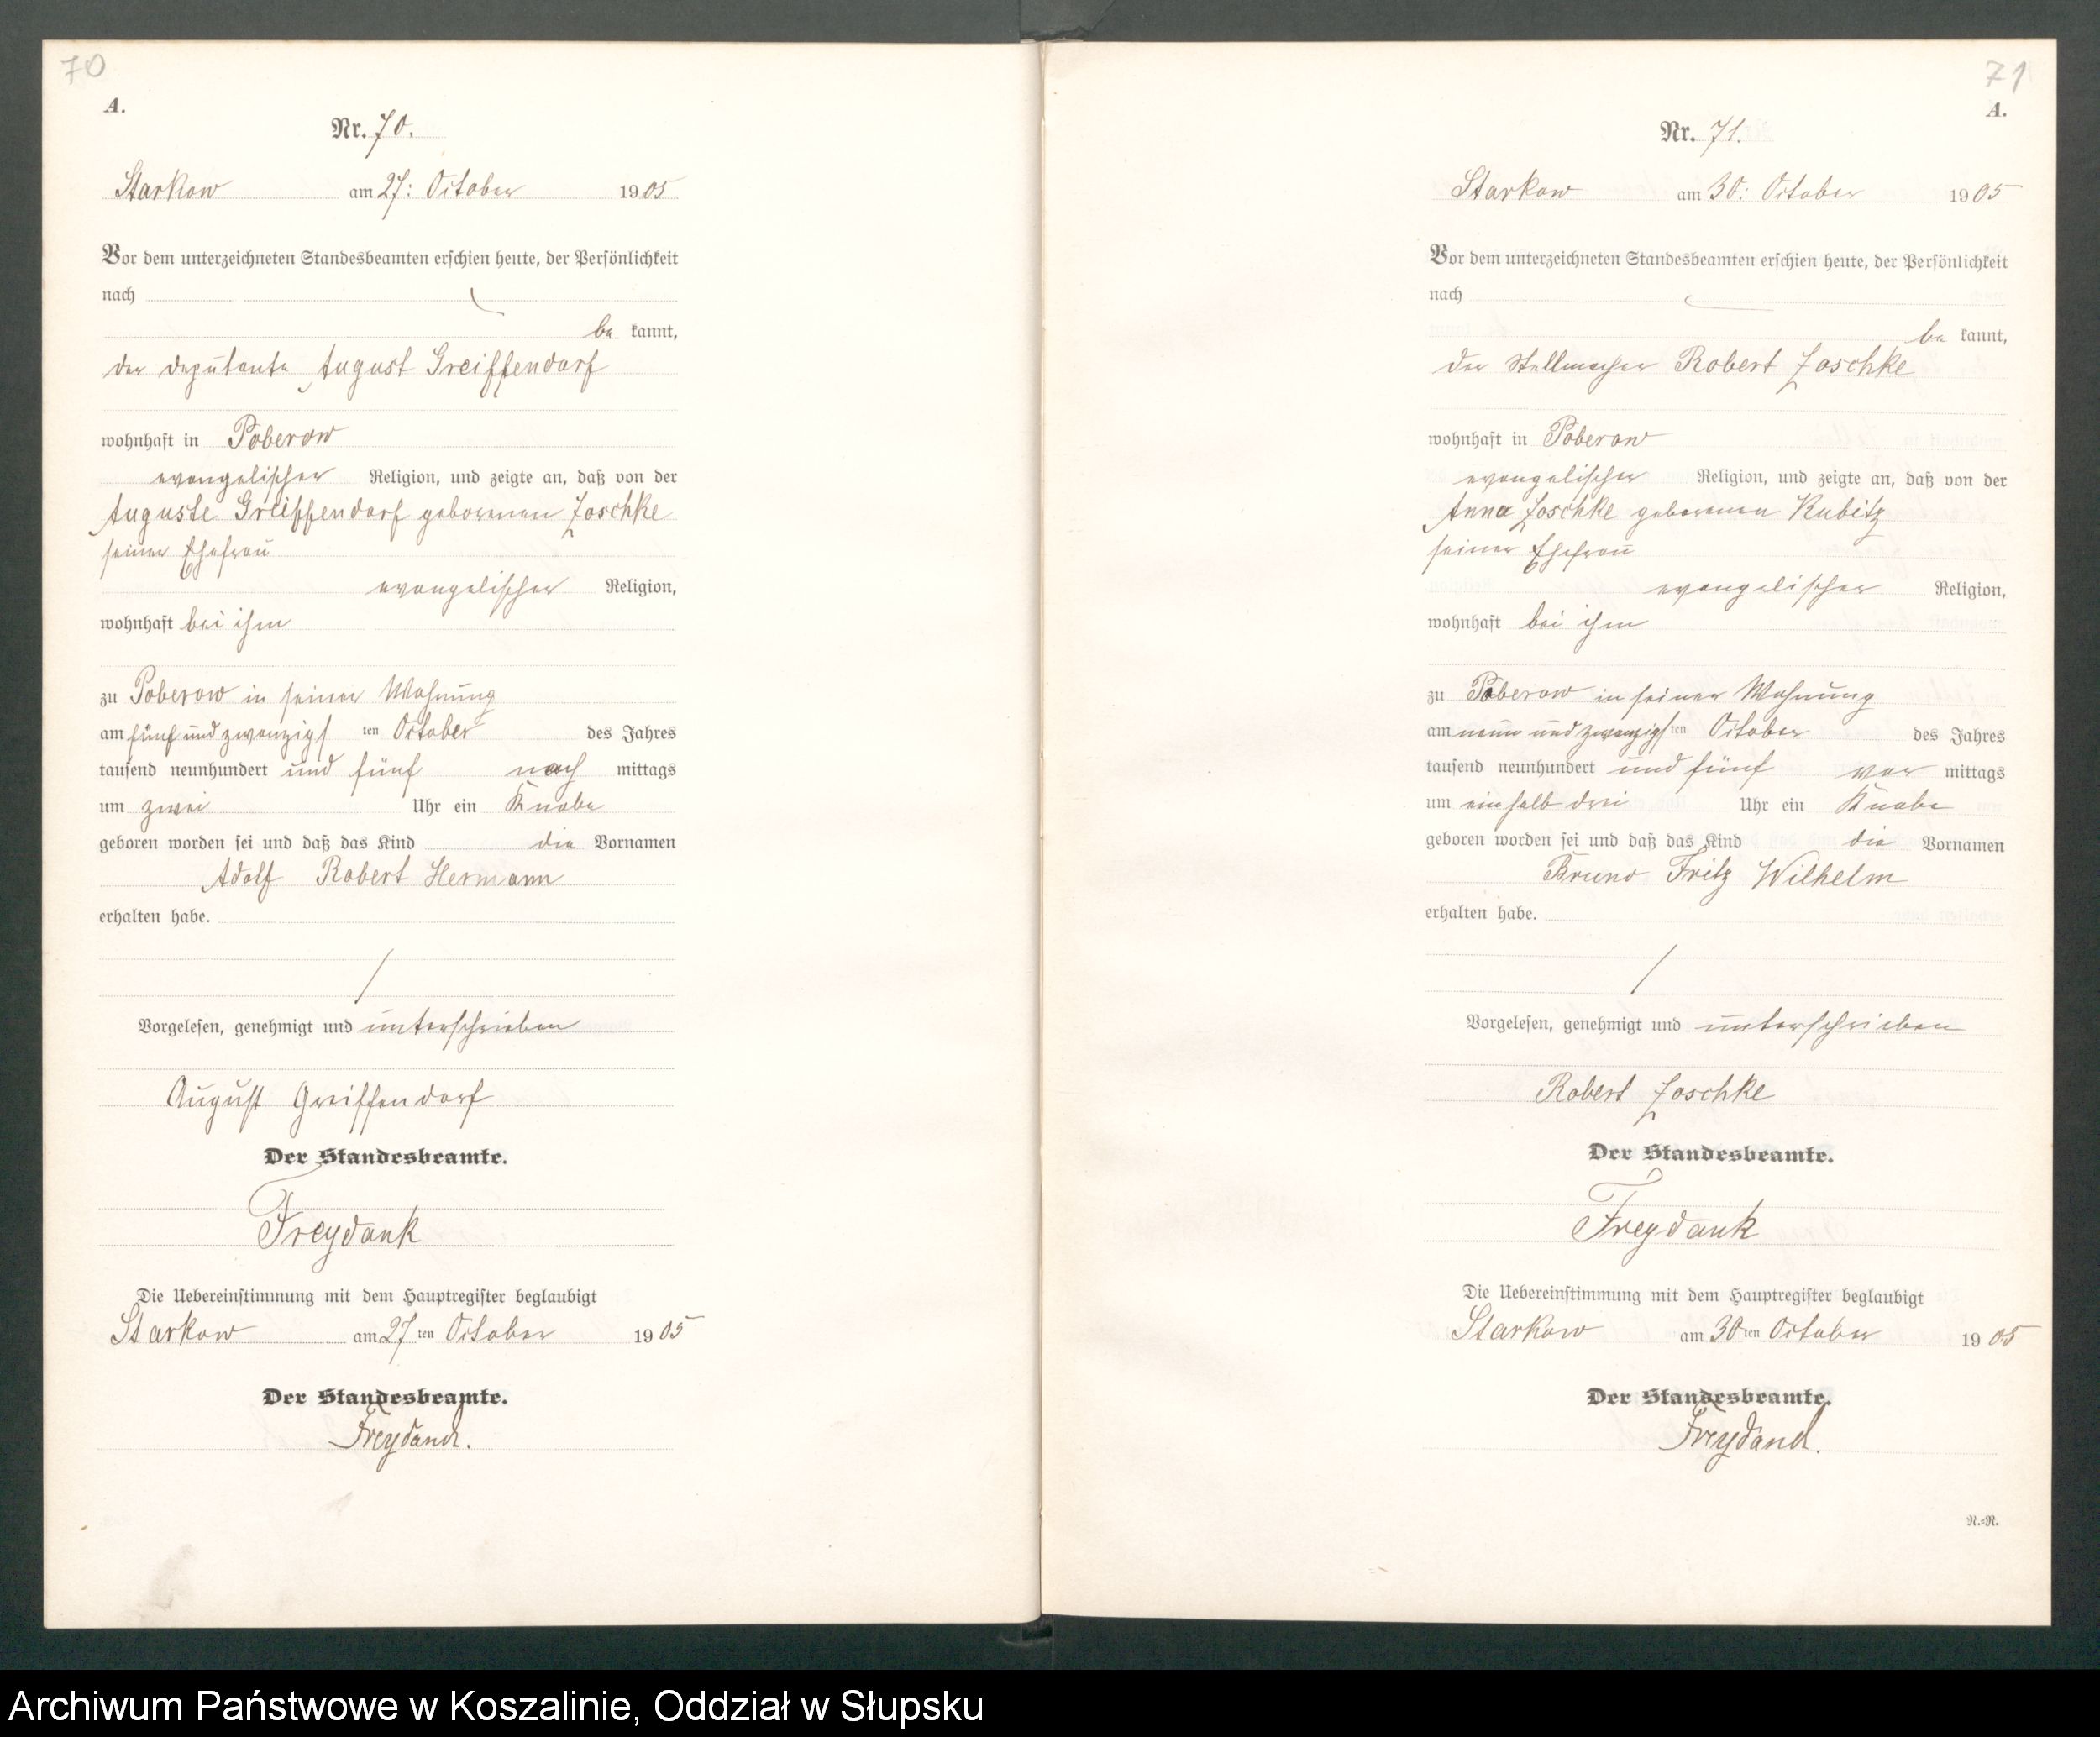 70
A.
Nr. 70.
Starkow am 27: October 1905
Vor dem unterzeichneten Standesbeamten erschien heute, der Persönlichkeit
nach
be kannt,
der Deputante August Greiffendorf
wohnhaft in Poberow
evangelischer Religion, und zeigte an, daß von der
Auguste Greiffendorf geborenen Joschke
seiner Ehefrau
evangelischer Religion,
wohnhaft bei ihm
zu Poberow in seiner Wohnung
am fünf und zwanzigs ten October des Jahres
tausend neunhundert und fünf nach mittags
um zwei Uhr ein Knabe
geboren worden sei und daß das Kind die Vornamen
Adolf Robert Hermann
erhalten habe.
Vorgelesen, genehmigt und unterschrieben
August Greiffendorf
Der Standesbeamte.
Freydank
Die Uebereinstimmung mit dem Hauptregister beglaubigt
Starkow am 27 ten October 1905
Der Standesbeamte.
Freydank.
71
A.
Nr. 71.
Starkow am 30: October 1905
Vor dem unterzeichneten Standesbeamten erschien heute, der Persönlichkeit
nach
be kannt,
der Stellmacher Robert Joschke
wohnhaft in Poberow
evangelischer Religion, und zeigte an, daß von der
Anna Joschke geborenen Kubitz
seiner Ehefrau
evangelischer Religion,
wohnhaft bei ihm
zu Poberow in seiner Wohnung
am neun und zwanzigs ten October des Jahres
tausend neunhundert und fünf vor mittags
um einhalb drei Uhr ein Knabe
geboren worden sei und daß das Kind die Vornamen
Bruno Fritz Wilhelm
erhalten habe.
Vorgelesen, genehmigt und unterschrieben
Robert Joschke
Der Standesbeamte.
Freydank
Die Uebereinstimmung mit dem Hauptregister beglaubigt
Starkow am 30 ten October 1905
Der Standesbeamte.
Freydank.
N.=R.
Archiwum Państwowe w Koszalinie, Oddział w Słupsku